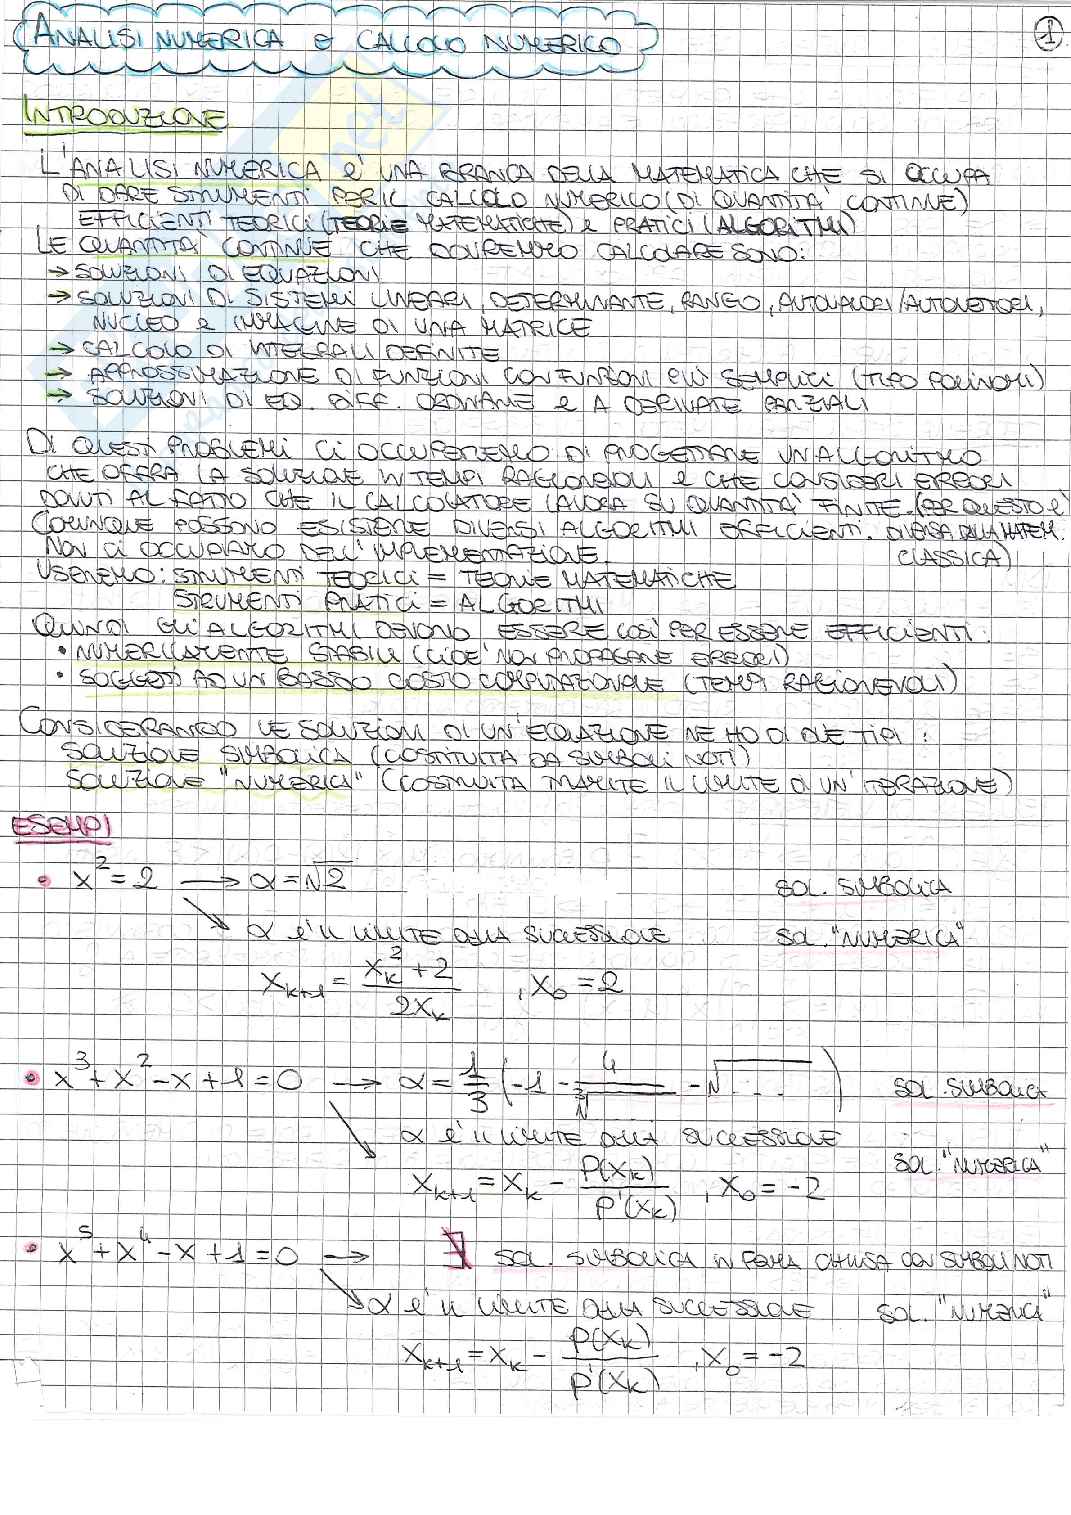 ANALISI NUMERICA e CALCOLO NUMERICO
1
INTRODUZIONE
L'ANALISI NUMERICA e' UNA BRANCA DELLA MATEMATICA CHE SI OCCUPA
DI DARE STRUMENTI PER IL CALCOLO NUMERICO (DI QUANTITÀ CONTINUE)
EFFICIENTI TEORICI (TEORIE MATEMATICHE) e PRATICI (ALGORITMI)
LE QUANTITÀ CONTINUE CHE DOVREMMO CALCOLARE SONO:
→ SOLUZIONI DI EQUAZIONI
→ SOLUZIONI DI SISTEMI LINEARI, DETERMINANTE, RANGO, AUTOVALORI/AUTOVETTORI,
NUCLEO e IMMAGINE DI UNA MATRICE
→ CALCOLO DI INTEGRALI DEFINITE
→ APPROSSIMAZIONE DI FUNZIONI CON FUNZIONI PIÙ SEMPLICI (TIPO POLINOMI)
→ SOLUZIONI DI EQ. DIFF. ORDINARIE e A DERIVATE PARZIALI
DI QUESTI PROBLEMI CI OCCUPEREMO DI PROGETTARE UN ALGORITMO
CHE OFFRA LA SOLUZIONE IN TEMPI RAGIONEVOLI e CHE CONSIDERI ERRORI
DOVUTI AL FATTO CHE IL CALCOLATORE LAVORA SU QUANTITA' FINITE. (PER QUESTO e'
COMUNQUE POSSONO ESISTERE DIVERSI ALGORITMI EFFICIENTI. DIVERSA DALLA MATEM.
NON CI OCCUPIAMO DELL'IMPLEMENTAZIONE. CLASSICA)
USEREMO: STRUMENTI TEORICI = TEORIE MATEMATICHE
STRUMENTI PRATICI = ALGORITMI
QUINDI GLI ALGORITMI DEVONO ESSERE COSÌ PER ESSERE EFFICIENTI:
• NUMERICAMENTE STABILI (CIOE' NON PROPAGARE ERRORI)
• SOGGETTI AD UN BASSO COSTO COMPUTAZIONALE (TEMPI RAGIONEVOLI)
CONSIDERANDO LE SOLUZIONI DI UN'EQUAZIONE NE HO DI DUE TIPI:
SOLUZIONE SIMBOLICA (COSTITUITA DA SIMBOLI NOTI)
SOLUZIONE "NUMERICA" (COSTRUITA TRAMITE IL LIMITE DI UN'ITERAZIONE)
ESEMPI
• x² = 2 → α = √2 SOL. SIMBOLICA
↘ α e' IL LIMITE DELLA SUCCESSIONE SOL. "NUMERICA"
x_{k+1} = (x_k² + 2) / (2x_k) , x_0 = 2
• x³ + x² - x + 1 = 0 → α = 1/3 (-1 - 4/∛ - √...) SOL. SIMBOLICA
↘ α e' IL LIMITE DELLA SUCCESSIONE SOL. "NUMERICA"
x_{k+1} = x_k - P(x_k)/P'(x_k) , x_0 = -2
• x⁵ + x⁴ - x + 1 = 0 → ∄ SOL. SIMBOLICA IN FORMA CHIUSA CON SIMBOLI NOTI
↘ α e' IL LIMITE DELLA SUCCESSIONE SOL. "NUMERICA"
x_{k+1} = x_k - P(x_k)/P'(x_k) , x_0 = -2